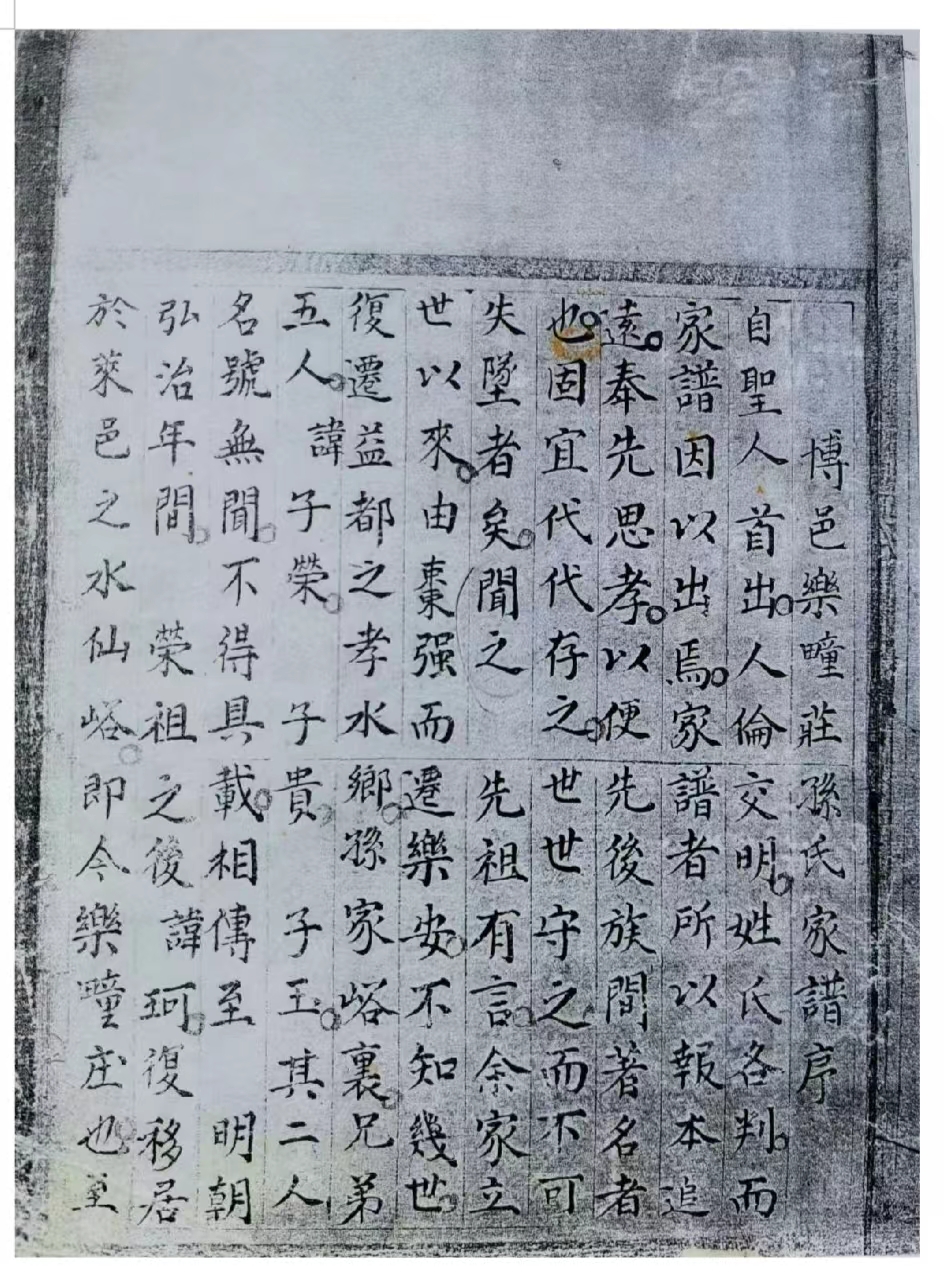 博邑樂疃莊孫氏家譜序
自聖人首出。人倫交明。姓氏各判。而
家譜因以出焉。家譜者所以報本追
遠。奉先思孝。以便先後族間著名者
也。固宜代代存之。世世守之。而不可
失墜者矣。聞之先祖有言。余家立
世以來。由棗强而遷樂安。不知幾世。
復遷益都之孝水鄉。孫家峪裏。兄弟
五人。諱子榮。子子貴。子玉。其二人
名號無聞。不得具載。相傳至明朝
弘治年間。榮祖之後諱珂。復移居
於萊邑之水仙峪。即今樂疃庄也。至